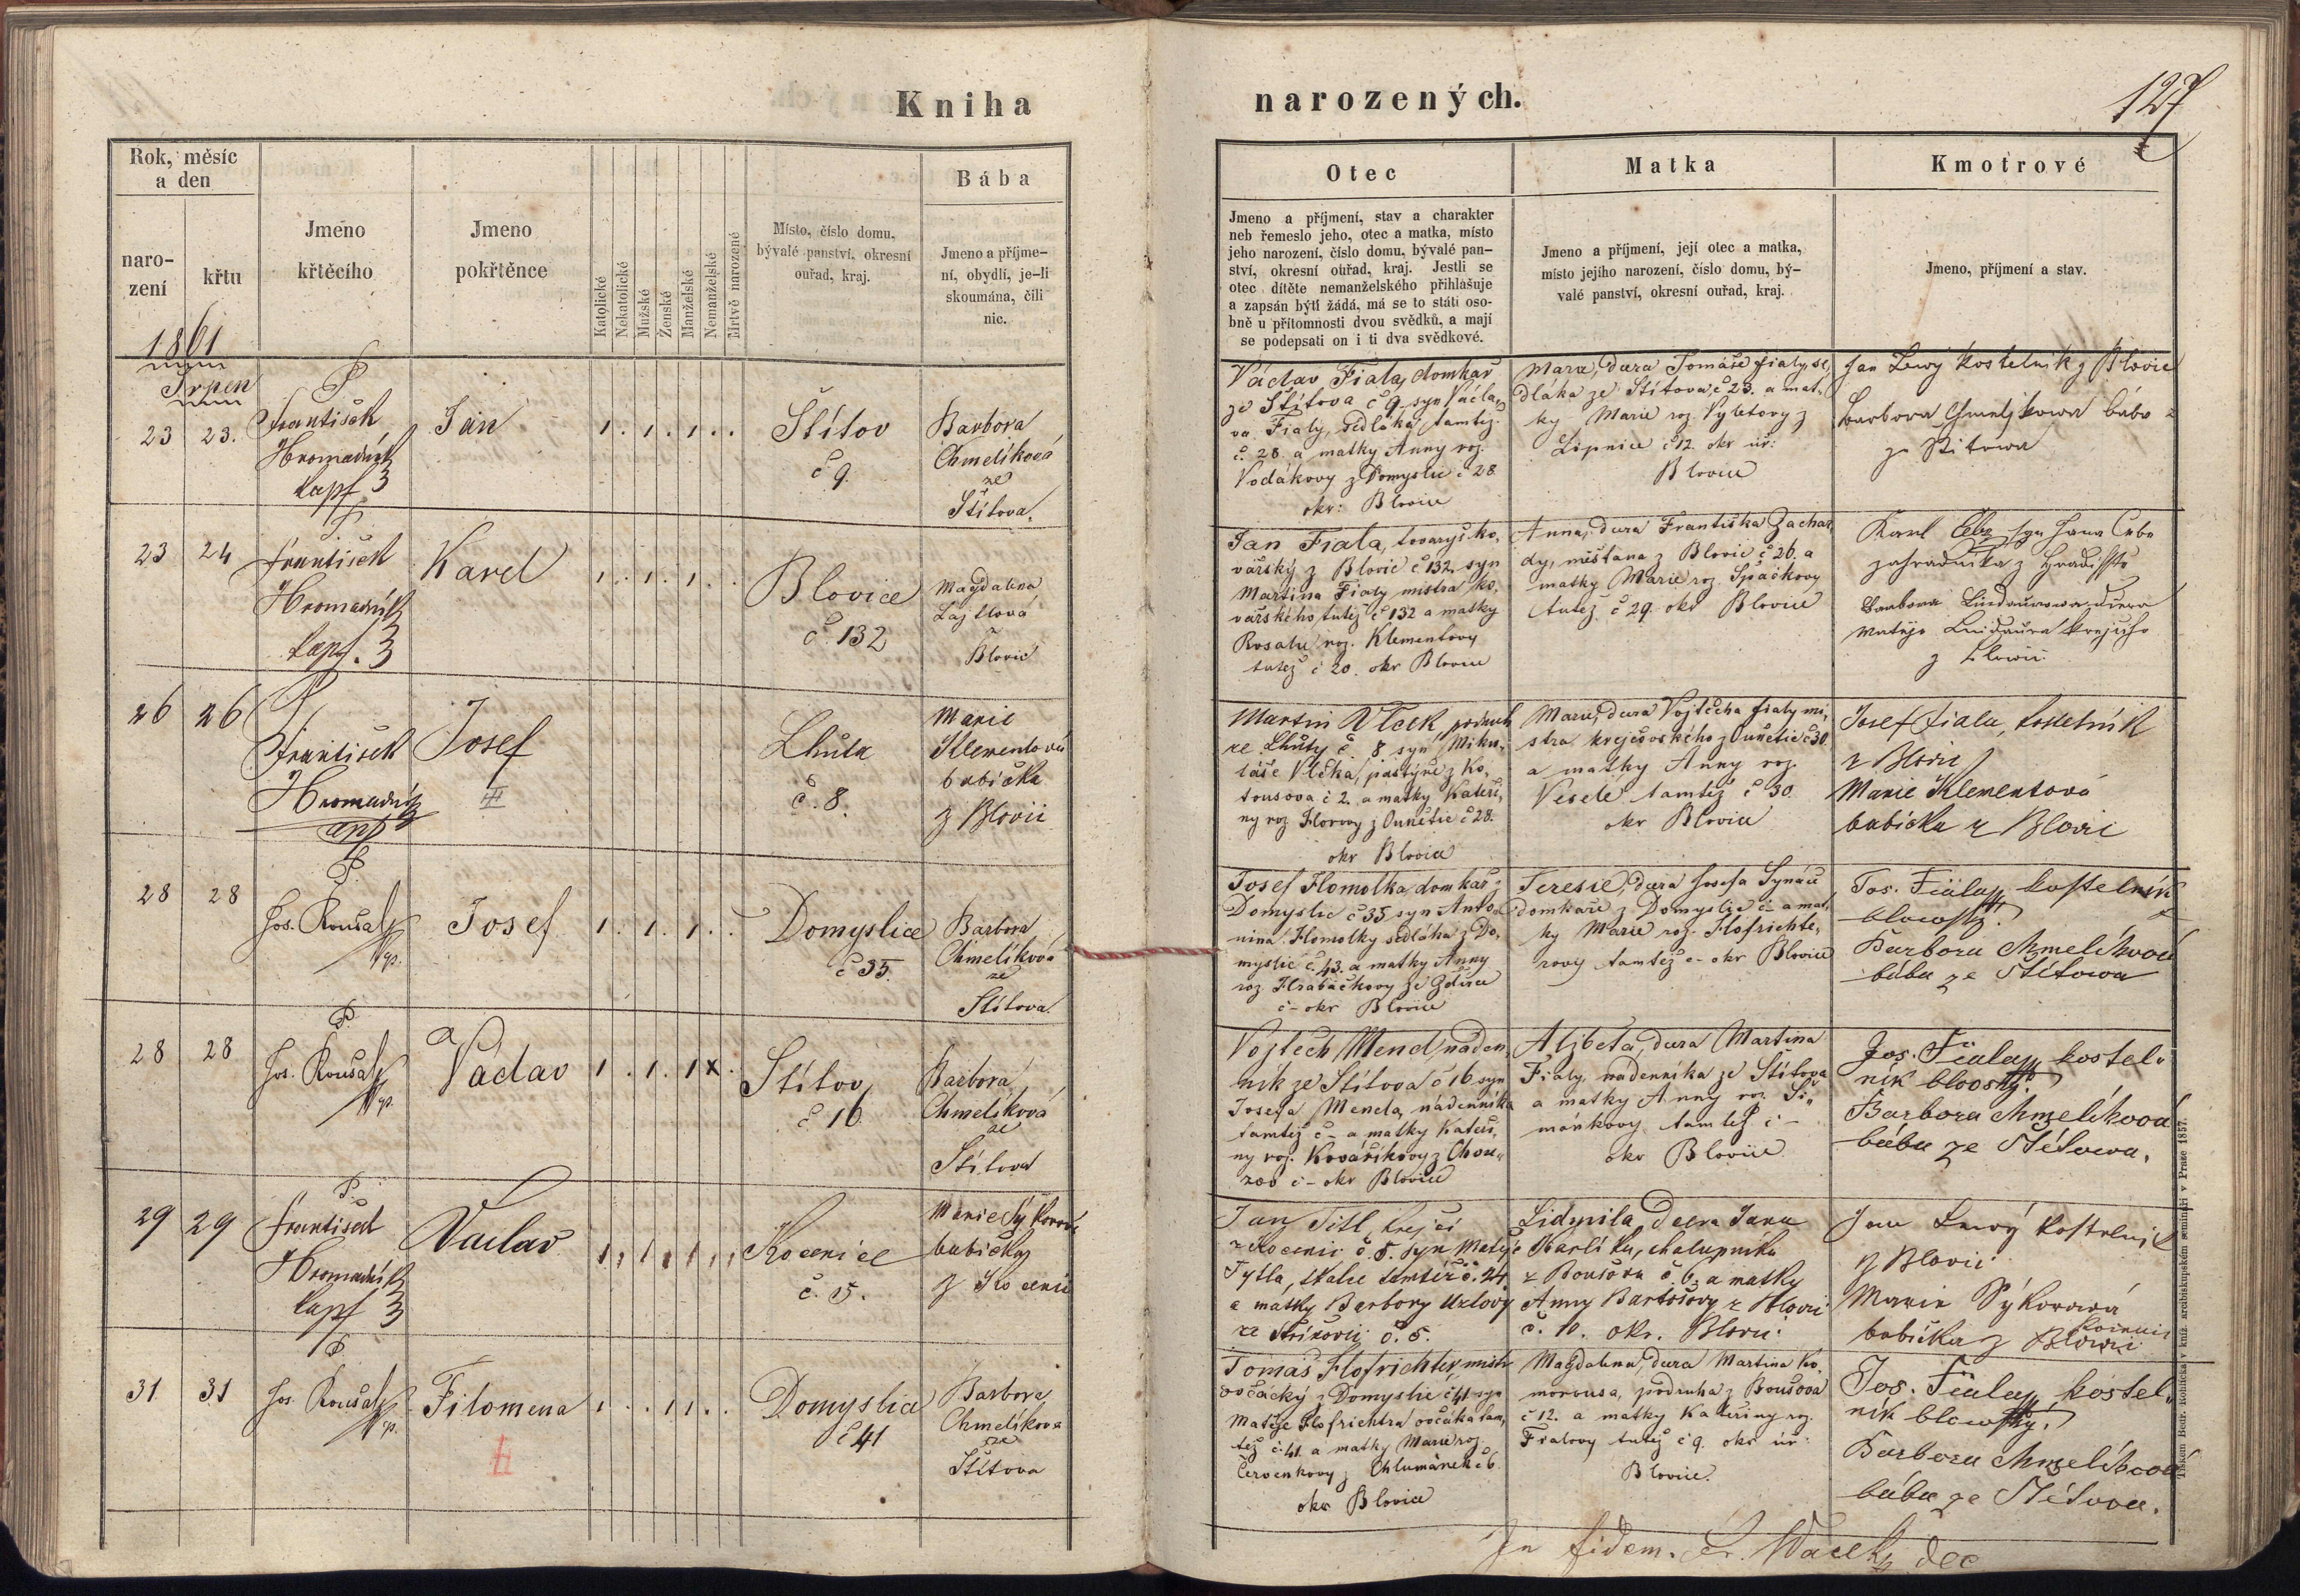 Kniha
narozených.
127
Rok, měsíc
a den
naro-
zení
křtu
Jmeno
křtěcího
Jmeno
pokřtěnce
Katolické
Nekatolické
Mužské
Ženské
Manželské
Nemanželské
Mrtvě narozené
Místo, číslo domu,
bývalé panství, okresní
ouřad, kraj.
Bába
Jmeno a příjme-
ní, obydlí, je-li
skoumána, čili
nic.
Otec
Jmeno a příjmení, stav a charakter
neb řemeslo jeho, otec a matka, místo
jeho narození, číslo domu, bývalé pan-
ství, okresní ouřad, kraj. Jestli se
otec dítěte nemanželského přihlašuje
a zapsán býti žádá, má se to státi oso-
bně u přítomnosti dvou svědků, a mají
se podepsati on i ti dva svědkové.
Matka
Jmeno a příjmení, její otec a matka,
místo jejího narození, číslo domu, bý-
valé panství, okresní ouřad, kraj.
Kmotrové
Jmeno, příjmení a stav.
1861
Srpen
23 23.
František
Hromadník
kapl.
Jan
Štítov
č 9.
Barbora
Chmelíková
ze
Štítova.
Václav Fiala, domkář
ze Štítova č 9 syn Václa-
va Fialy, sedláka tamtéž
č. 28. a matky Anny roz.
Vodákovy z Domyslic č 28.
okr: Blovice
Marie, dcera Tomáše Fialy se-
dláka ze Štítova č 23. a mat-
ky Marie roz. Vyletovy z
Lipnice č 12. okr úř:
Blovice
Jan Lewý kostelník z Blovic
Barbora Chmeljkowa bába
ze Stitowa
23 24
František
Hromadník
kapl.
Karel
Blovice
č. 132
Magdalena
Lajtlová
Blovic
Jan Fiala, tovaryš ko-
vářský z Blovic č 132 syn
Martina Fialy mistra ko-
vářského tutéž č 132 a matky
Rosalie roz. Klementovy
tutéž č 20. okr Blovice
Anna, dcera Františka Zachar-
dy, měšťana z Blovic č 26. a
matky Marie roz. Spáčkovy
tutéž č 29. okr Blovice
Karel syn Jana
zahradníka z Hradiště
Barbora Lindaurowa dcera
Matěje Lindaura krejčího
z Blowic
26 26
František
Hromadník
kapl
Josef
Lhuta
č. 8.
Marie
Klementová
babička
z Blovic
Martin Vlček, podruh
ze Lhuty č 8 syn Miku-
láše Vlčka, pastýře z Ko-
tousova č 2. a matky Kateři-
ny roz Florovy z Ounětic č 28.
okr Blovice
Marie, dcera Vojtěcha Fialy mi-
stra krejčovského z Ounětic č 30
a matky Anny roz.
Veselé tamtéž č 30.
okr Blovice
Josef Fiala, kostelník
z Blovic
Marie Klementová
babička z Blovic
28 28
Jos. Roušal
Josef
Domyslice
č 35.
Barbora
Chmelíková
ze
Štítova.
Josef Homolka, domkář z
Domyslic č 35 syn Anto-
nína Homolky sedláka z Do-
myslic č 43. a matky Anny
roz. Hrabáčkovy ze Ždírce
č - okr Blovice
Teresie, dcera Josefa Synáče
domkáře z Domyslic č - a mat-
ky Marie roz. Hofrichte-
rovy tamtéž č - okr Blovice
Jos. Fiala, kostelník
blowský.
Barbora Chmelíková
bába ze Štítowa
28 28
Jos. Roušal
Václav
Štítov
č 16.
Barbora
Chmelíková
ze
Štítova
Vojtěch Mencl, náden-
ník ze Štítova č 16 syn
Josefa Mencla, nádenníka
tamtéž č - a matky Kateři-
ny roz. Kovaříkovy z Chou-
zov č - okr Blovice
Alžběta, dcera Martina
Fialy, nádenníka ze Štítova
a matky Anny roz. Ši-
mánkovy tamtéž č -
okr Blovice
Jos. Fiala, kostel-
ník blovský.
Barbora Chmelíková
bába ze Štítowa.
29 29
František
Hromadník
kapl
Václav
Kocenice
č. 5.
Marie Sýkorová
babička
z Kocenic
Jan Titl, krejčí
z Kocenic č. 5. syn Matěje
Tytla, tkalce tamtéž č. 24
a matky Barbory Uzlovy
ze Střížovic č. 5.
Lidmila, dcera Jana
Karlíka, chalupníka
z Boušova č. 6, a matky
Anny Bartošovy z Blovic
č. 10. okr. Blovic:
Jan Lewý kostelník
z Blovic
Marie Sýkorová
babička z Blowic
Kocenic
31 31
Jos. Roušal
Filomena
Domyslice
č 41
Barbora
Chmelíkova
ze
Štítova
Tomáš Hofrichter, mistr
ovčácký z Domyslic č 41 syn
Matěje Hofrichtra ovčáka tam-
též č. 41. a matky Marie roz.
Červenkovy z Chlumánek č 6.
okr Blovice
Magdalena, dcera Martina Ko-
morousa, podruha z Boušova
č 12. a matky Kateřiny roz.
Fialovy tutéž č 9. okr úř:
Blovice.
Jos. Fiala, kostel-
ník blowský.
Barbora Chmelíkova
bába ze Štítova.
In fidem. Fr. Wacek dec
Tiskem Bedř. Rohlíčka v kníž. arcibiskupském semináři v Praze 1857.